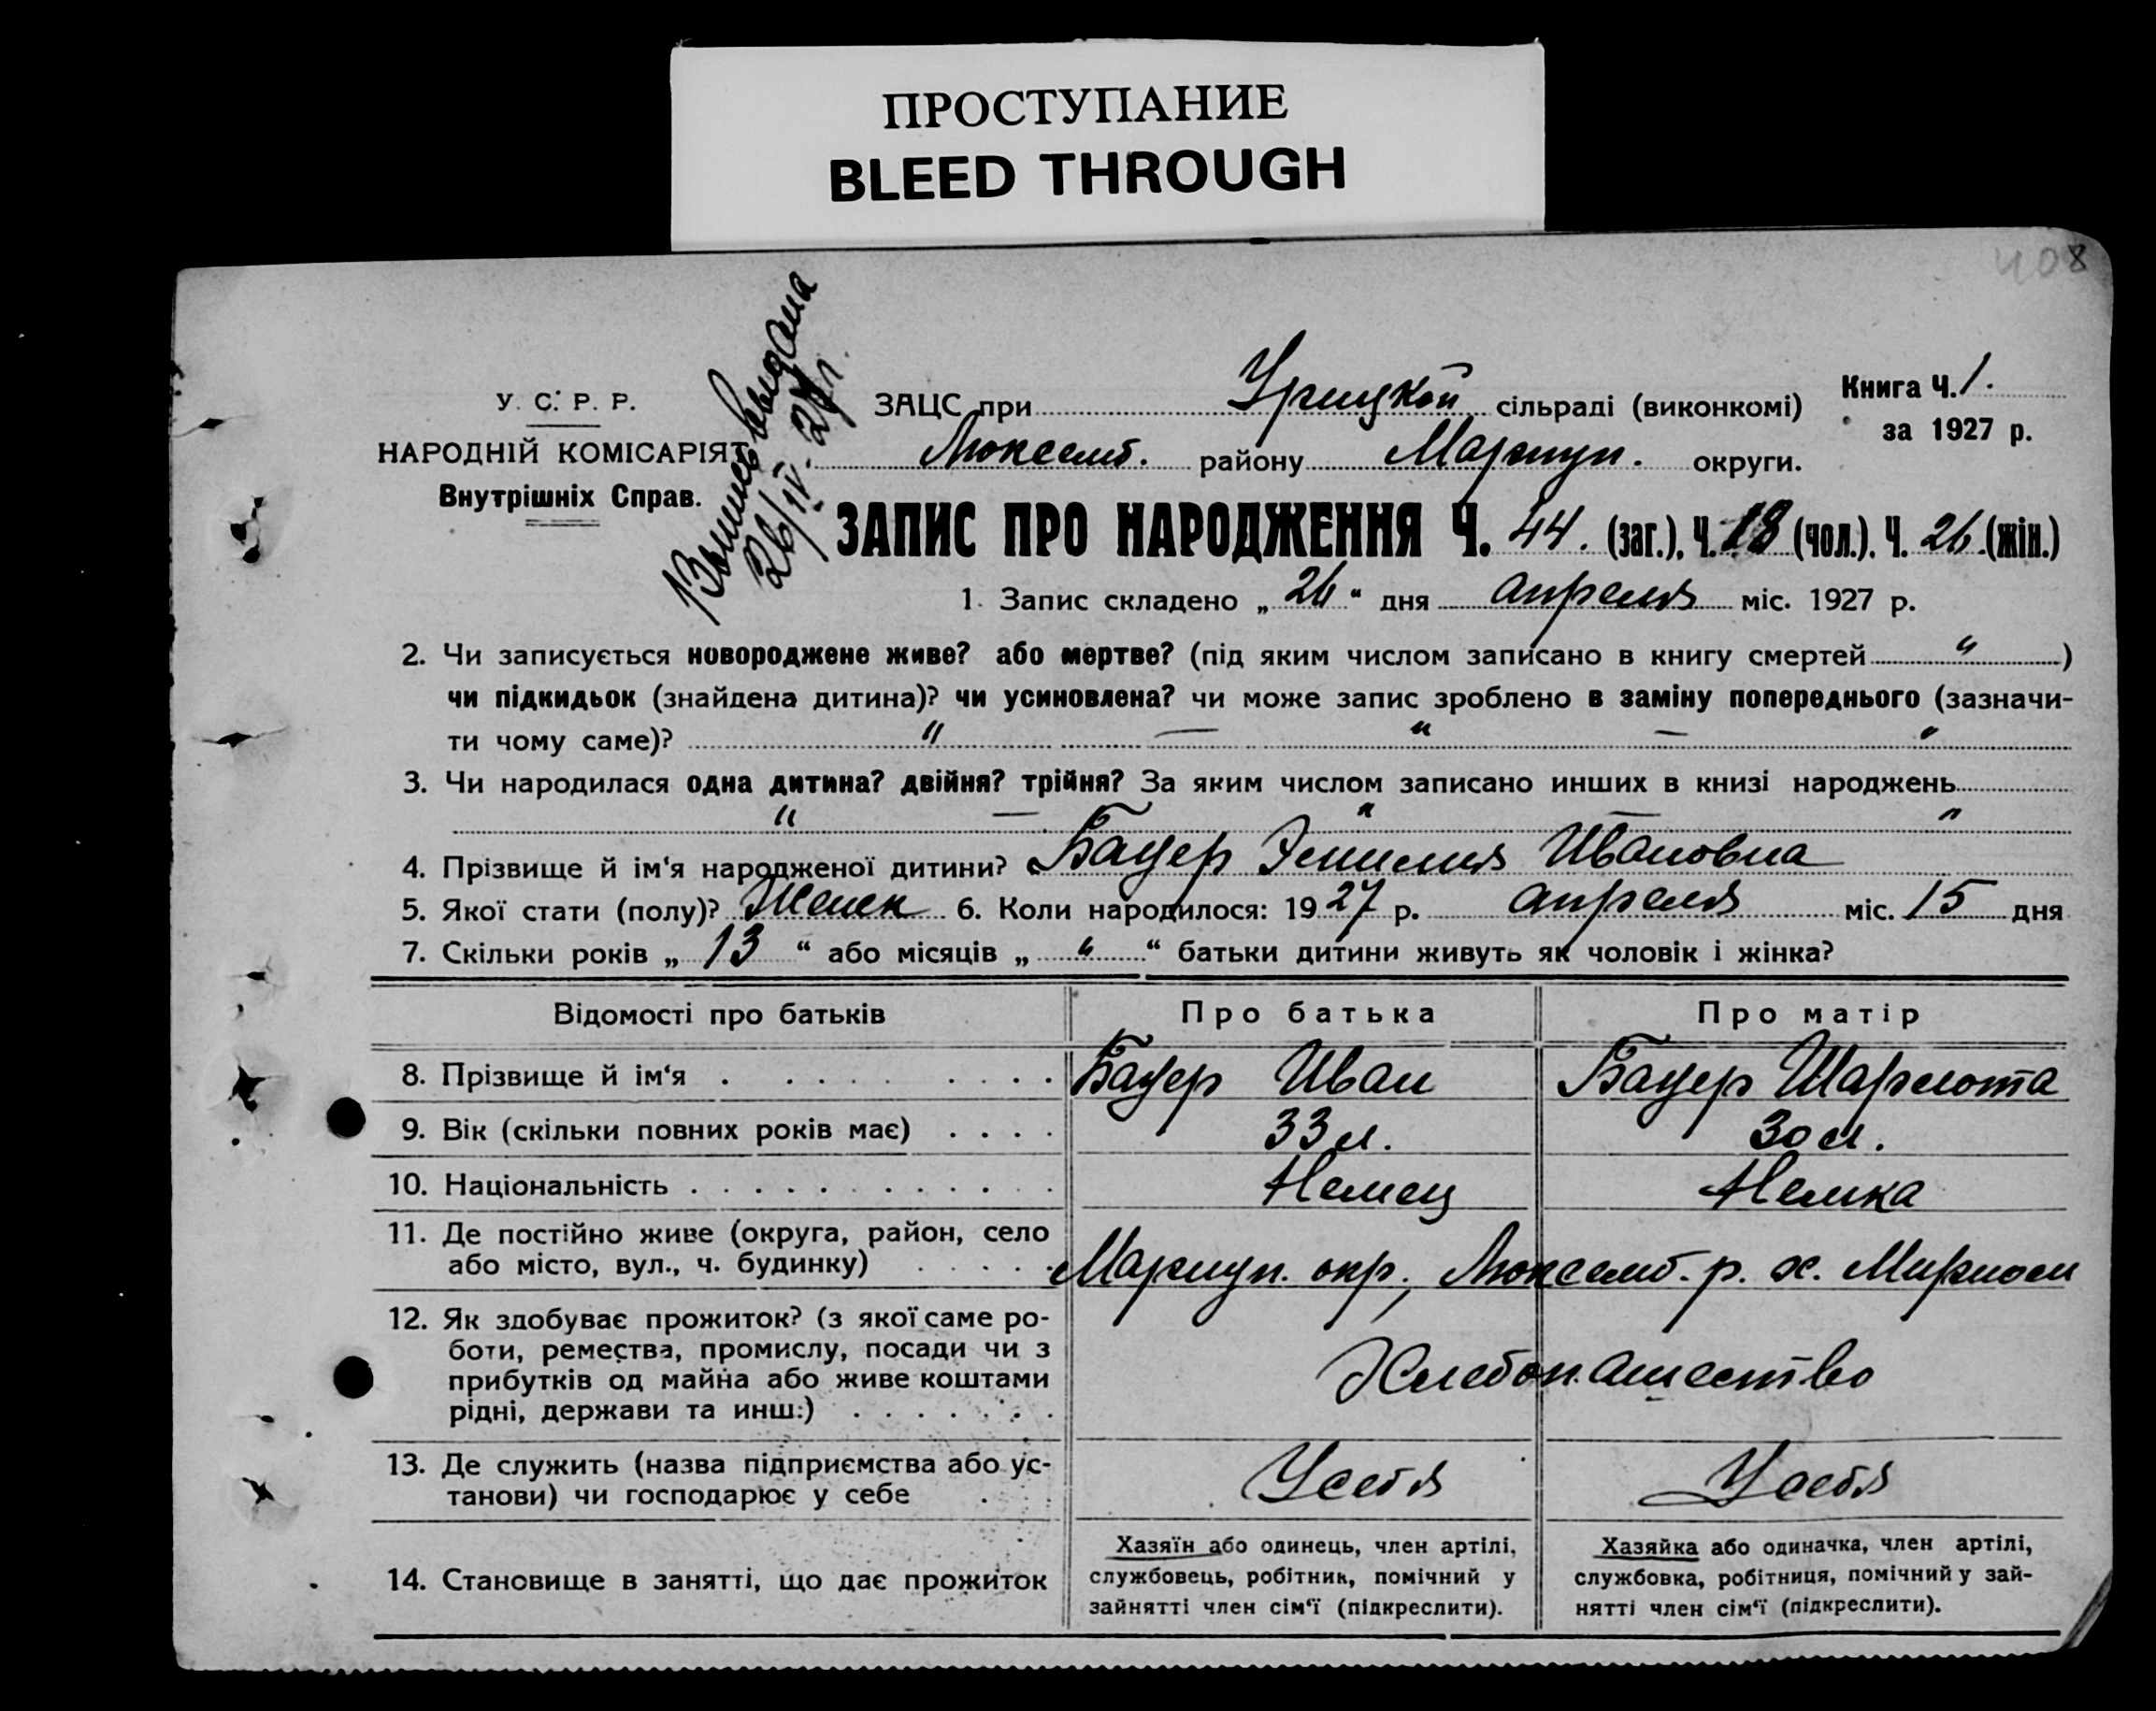 ПРОСТУПАНИЕ
BLEED THROUGH
408
У. С. Р. Р.
НАРОДНІЙ КОМІСАРІЯТ
Внутрішніх Справ.
Выпись выдана
26/IV 27 г.
ЗАЦС при Урицкой сільраді (виконкомі)
Книга Ч. 1.
за 1927 р.
Люксемб. району Мариуп. округи.
ЗАПИС ПРО НАРОДЖЕННЯ Ч. 44. (заг.). Ч. 18 (чол.). Ч. 26 (жін.)
1. Запис складено „ 26 “ дня апреля міс. 1927 р.
2. Чи записується новороджене живе? або мертве? (під яким числом записано в книгу смертей " )
чи підкидьок (знайдена дитина)? чи усиновлена? чи може запис зроблено в заміну попереднього (зазначи-
ти чому саме)? " — " — "
3. Чи народилася одна дитина? двійня? трійня? За яким числом записано инших в книзі народжень
" — " — "
4. Прізвище й ім‘я народженої дитини? Бауер Эмилия Ивановна
5. Якої стати (полу)? Женск 6. Коли народилося: 1927 р. апреля міс. 15 дня
7. Скільки років „ 13 “ або місяців „ " “ батьки дитини живуть як чоловік і жінка?
Відомості про батьків Про батька Про матір
8. Прізвище й ім‘я Бауер Иван Бауер Шарлота
9. Вік (скільки повних років має) 33 л. 30 л.
10. Національність Немец Немка
11. Де постійно живе (округа, район, село
або місто, вул., ч. будинку) Мариуп. окр., Люксемб. р. х.
12. Як здобуває прожиток? (з якої саме ро-
боти, ремества, промислу, посади чи з
прибутків од майна або живе коштами
рідні, держави та инш.) Хлебопашество
13. Де служить (назва підприємства або ус-
танови) чи господарює у себе У себя У себя
14. Становище в занятті, що дає прожиток
Хазяїн або одинець, член артілі,
службовець, робітник, помічний у
зайнятті член сім‘ї (підкреслити).
Хазяйка або одиначка, член артілі,
службовка, робітниця, помічний у зай-
нятті член сім‘ї (підкреслити).